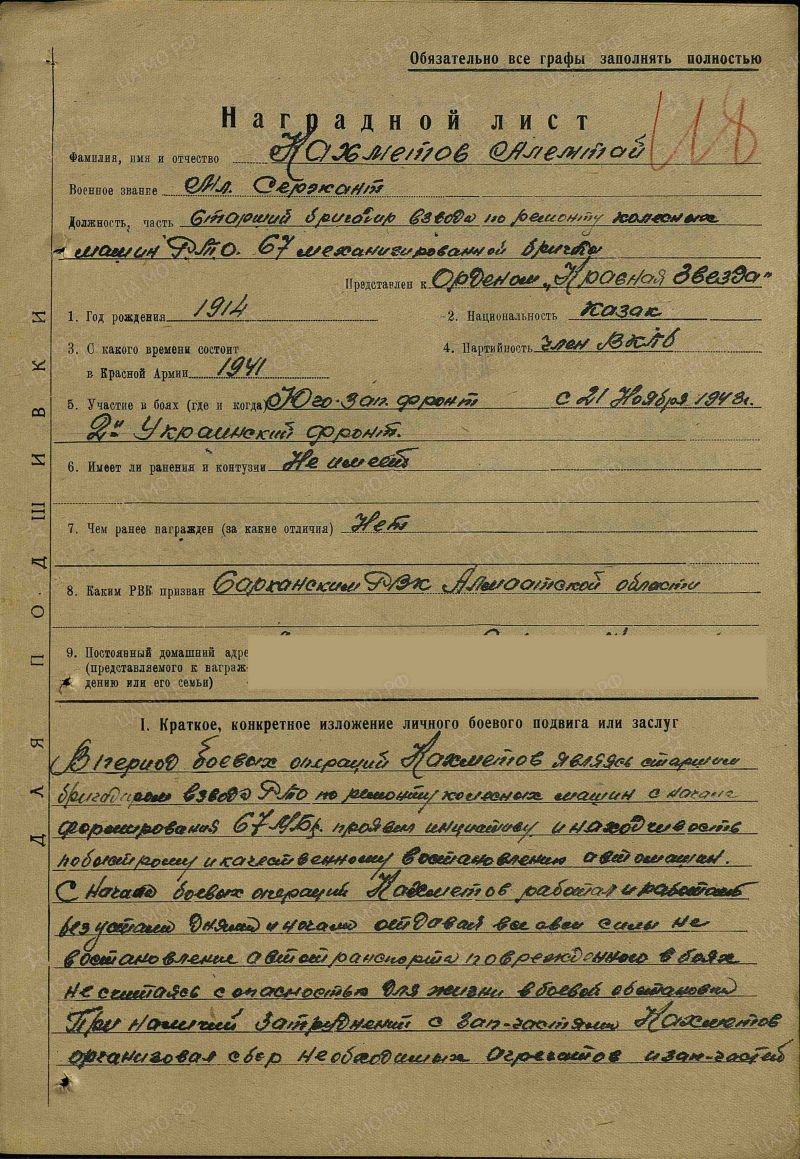 Обязательно все графы заполнять полностью
Наградной лист
118
Фамилия, имя и отчество Кахметов Алемтай
Военное звание Мл. Сержант
Должность, часть Старший бригадир взвода по ремонту колесных
машин РТО. 67 механизированной бригады
Представлен к Орденом „Красная Звезда"
1. Год рождения 1914
2. Национальность казак
3. С какого времени состоит
в Красной Армии 1941
4. Партийность член ВКПб
5. Участие в боях (где и когда) Юго-зап. фронт с 21 Ноября 1943г.
2й Украинский фронт.
6. Имеет ли ранения и контузии Не имеет
7. Чем ранее награжден (за какие отличия) Нет
8. Каким РВК призван Сарканским РВК Алмаатской области
9. Постоянный домашний адре
(представляемого к награж-
дению или его семьи)
ДЛЯ ПОДШИВКИ
I. Краткое, конкретное изложение личного боевого подвига или заслуг
В период боевых операций Кахметов являясь старшим
бригадиром взвода РТО по ремонту колесных машин с начала
формирования 67 МБр. проявил инициативу и находчивость
по быстрому и качественному востановлению автомашин.
С начала боевых операций Кахметов работал и работает
без устали днями и ночами отдавая все свои силы на
востановление автотранспорта поврежденного в боях
не считаясь с опасностью для жизни в боевой обстановке
При наличий затруднений с зап-частями Кахметов
организовал сбор необходимых агрегатов и зап-частей